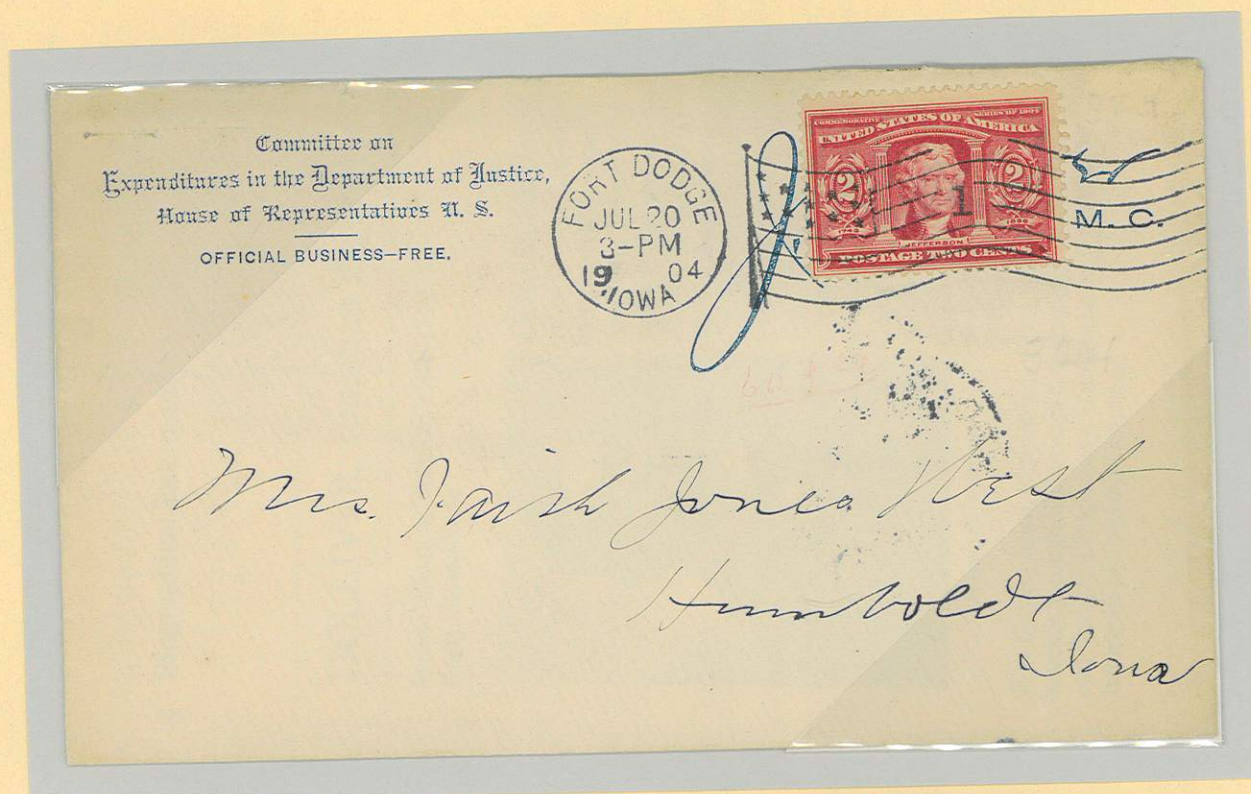 Committee on
Expenditures in the Department of Justice,
House of Representatives U. S.
OFFICIAL BUSINESS—FREE.
FORT DODGE
JUL 20
3-PM
19 04
IOWA
COMMEMORATIVE SERIES OF 1904
UNITED STATES OF AMERICA
2 2
1
JEFFERSON
POSTAGE TWO CENTS
M. C.
Mrs. Faith Jones West
Humboldt
Iowa